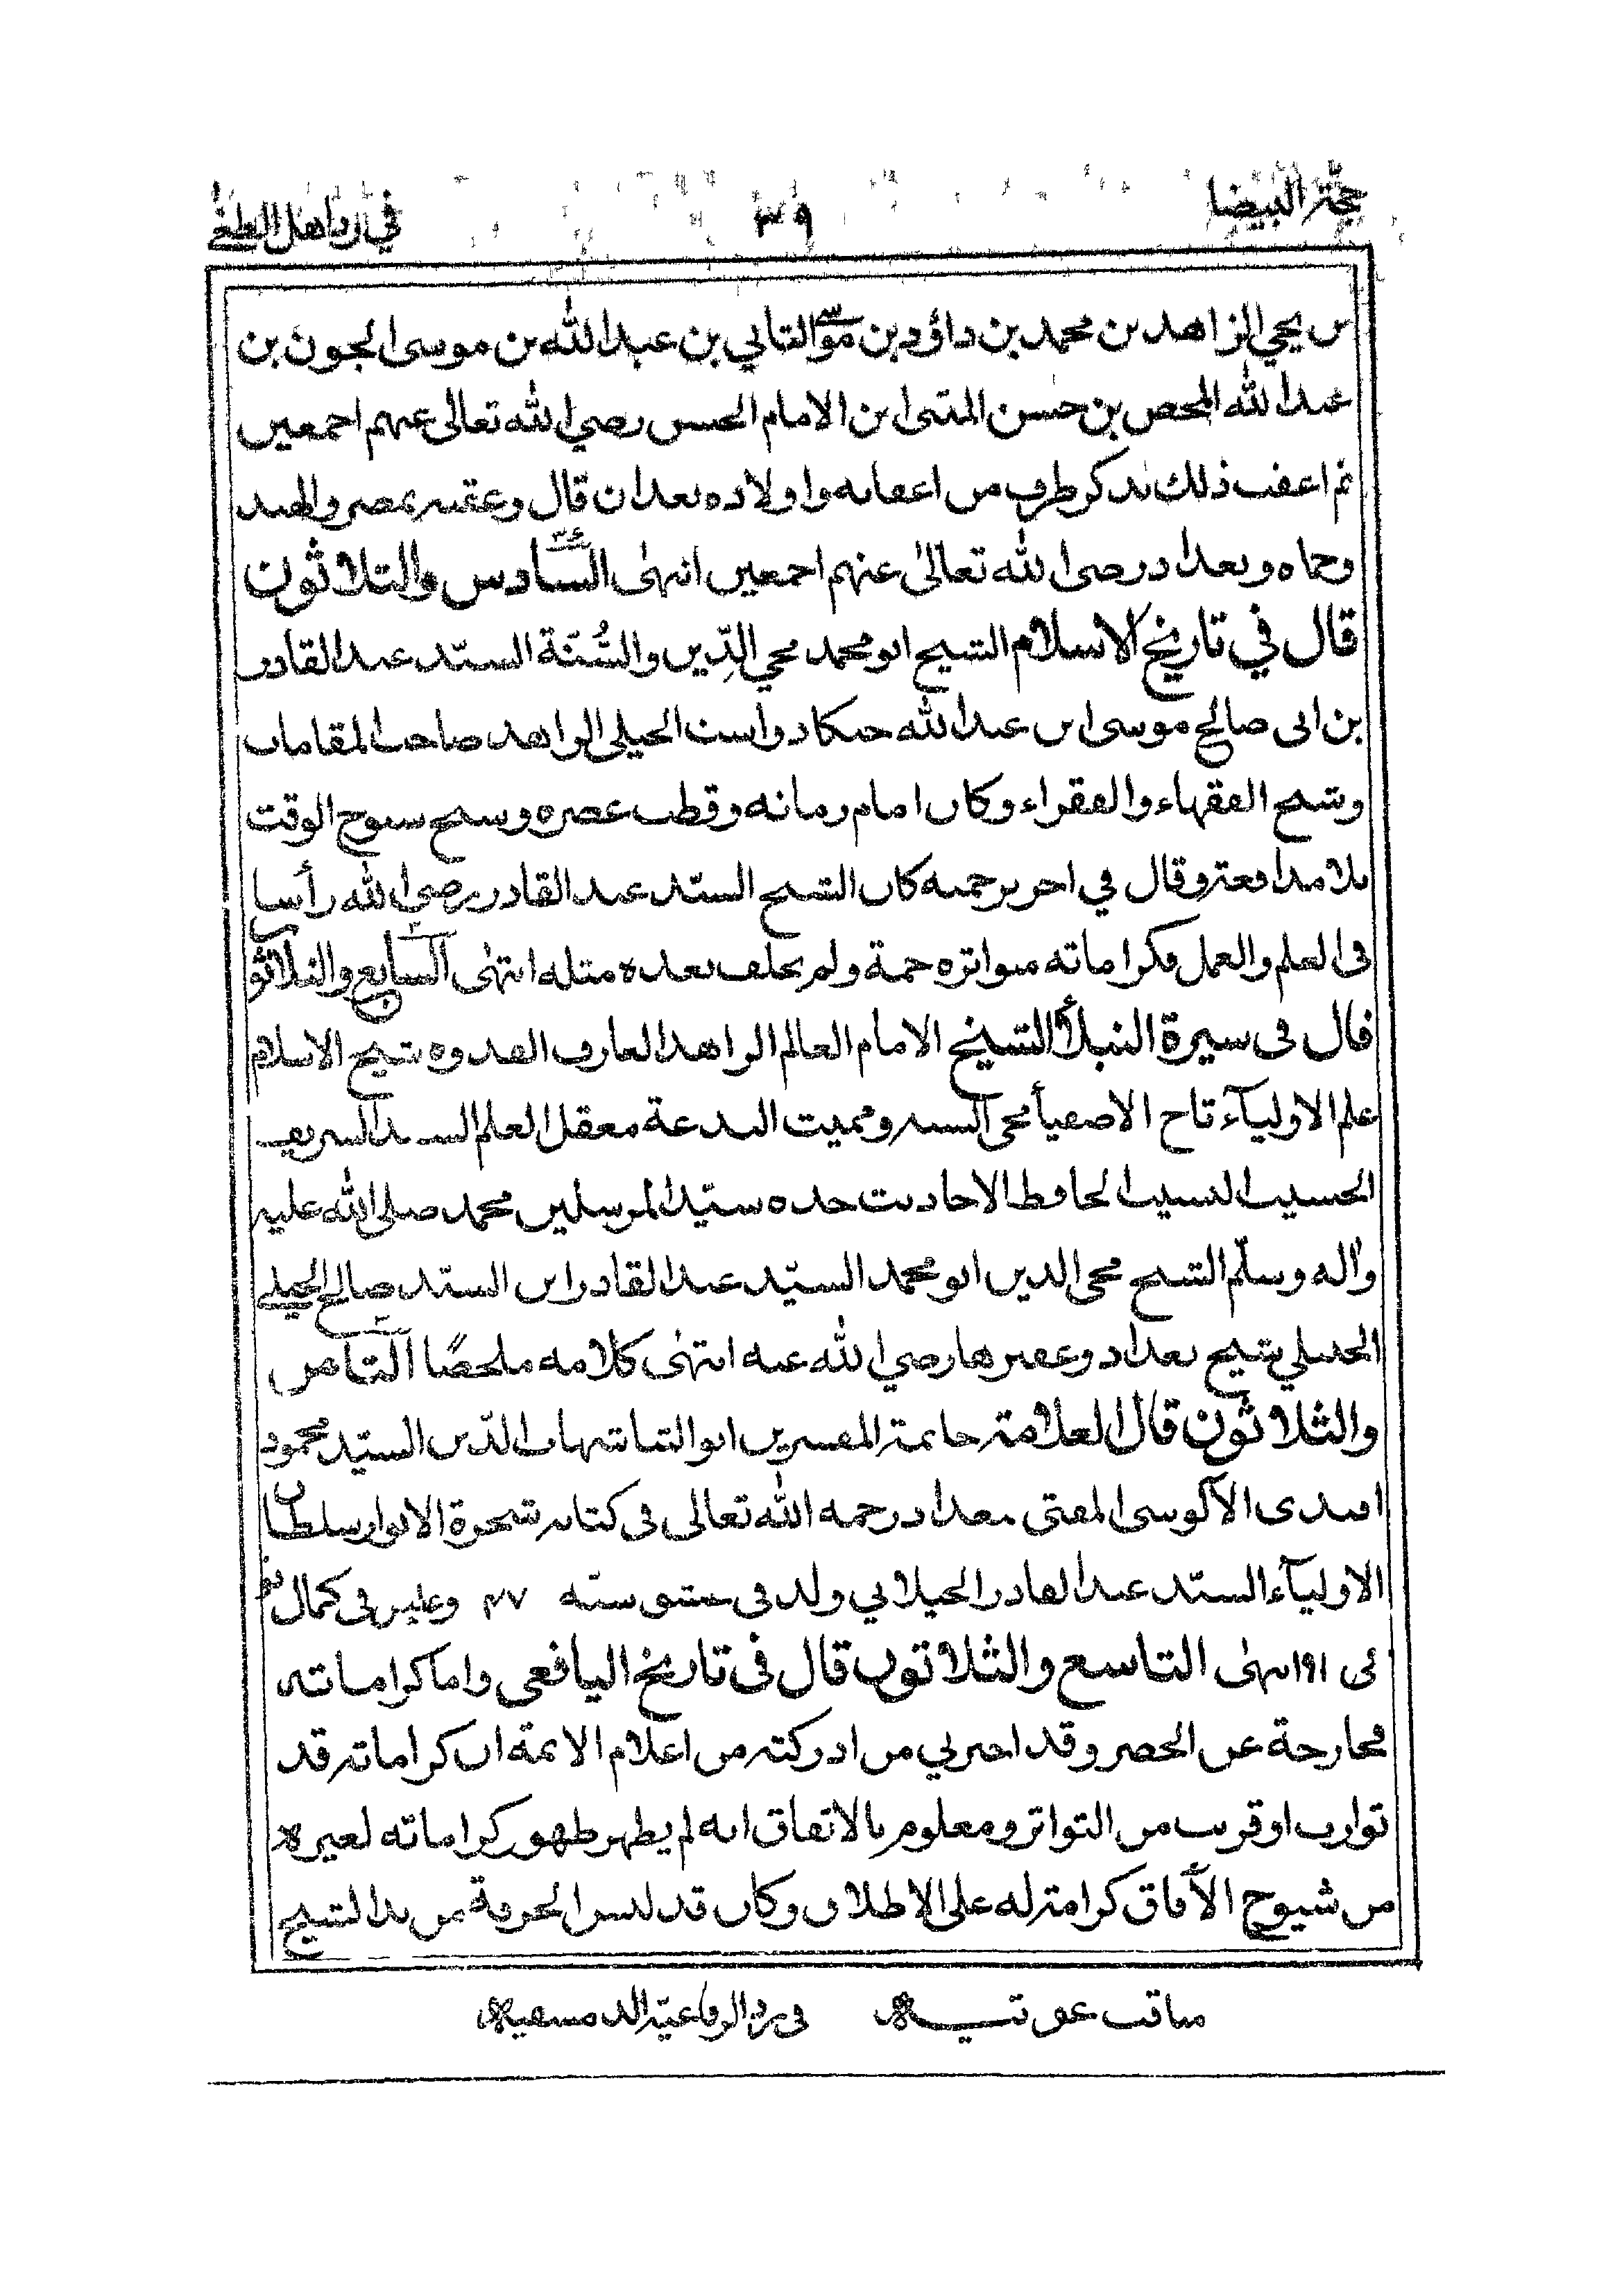 حجة البيضا ٣٩ في رد اهل الطغى
بن يحي الزاهد بن محمد بن داؤد بن موسى الثاني بن عبد الله بن موسى الجون بن
عبد الله المحض بن حسن المثنى ابن الامام الحسن رضي الله تعالى عنهم اجمعين
ثم اعقب ذلك بذكر طرف من اعقابه واولاده بعد ان قال وعقبه بمصر والهند
وحماه وبغداد رضى الله تعالىٰ عنهم اجمعين انتهىٰ السادس والثلاثون
قال في تاريخ الاسلام الشيخ ابو محمد محي الدِّين والسُّنّة السيّد عبد القادر
بن ابى صالح موسى ابن عبد الله جنكادوست الجيلى الزاهد صاحب المقامات
وشيخ الفقهاء والفقراء وكان امام زمانه وقطب عصره وشيخ شيوخ الوقت
بلا مدافعة وقال في اخر ترجمته كان الشيخ السيّد عبد القادر رضي الله رأسا
فى العلم والعمل وكراماته متواتره جمة ولم يخلف بعده مثله انتهىٰ السابع والثلاثون
قال فى سيرة النبلأ الشيخ الامام العالم الزاهد العارف القدوه شيخ الاسلام
علم الاوليآء تاج الاصفيأ محى السنه ومميت البدعة معقل العلم السيد الشريف
الحسيب النسيب الحافظ الاحاديث جده سيّد المرسلين محمد صلى الله عليه
واٰله وسلّم الشيخ محى الدين ابو محمد السيّد عبد القادر ابن السيّد صالح الجيلى
الحنبلي شيخ بغداد وغيرها رضي الله عنه انتهىٰ كلامه ملخصًا الثامن
والثلاثون قال العلامة خاتمة المفسرين ابو الثنا شهاب الدّين السيّد محمود
افندى الآلوسى المفتى ببغداد رحمه الله تعالى فى كتابه شجرة الانوار سلطان
الاوليآء السيّد عبد القادر الجيلاني ولد فى عشق سنه ٤٧ وعليه فى كمال
فى ٩١ انتهىٰ التاسع والثلاثون قال فى تاريخ اليافعى واما كراماته
فخارجة عن الحصر وقد اخبرني من ادركته من اعلام الائمة ان كراماته قد
تواترت او قربت من التواتر ومعلوم بالاتفاق انه لم يظهر ظهور كراماته لغيره
من شيوخ الأفاق كرامة له على الاطلاق وكان قد لبس الخرقة من يد الشيخ
مناقب غوثيه فى رد الرفاعية